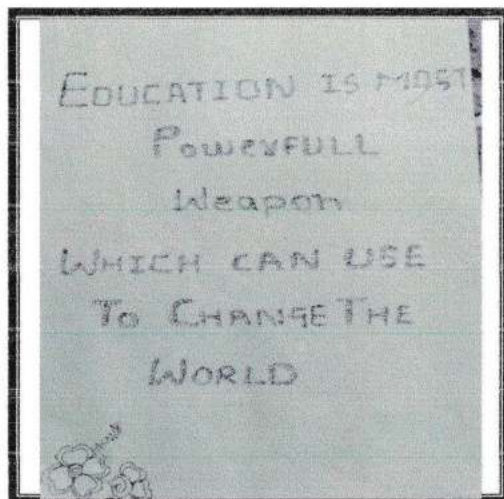 EDUCATION IS MOST
PowerFULL
Weapon
WHICH CAN USE
To CHANGE THE
WORLD